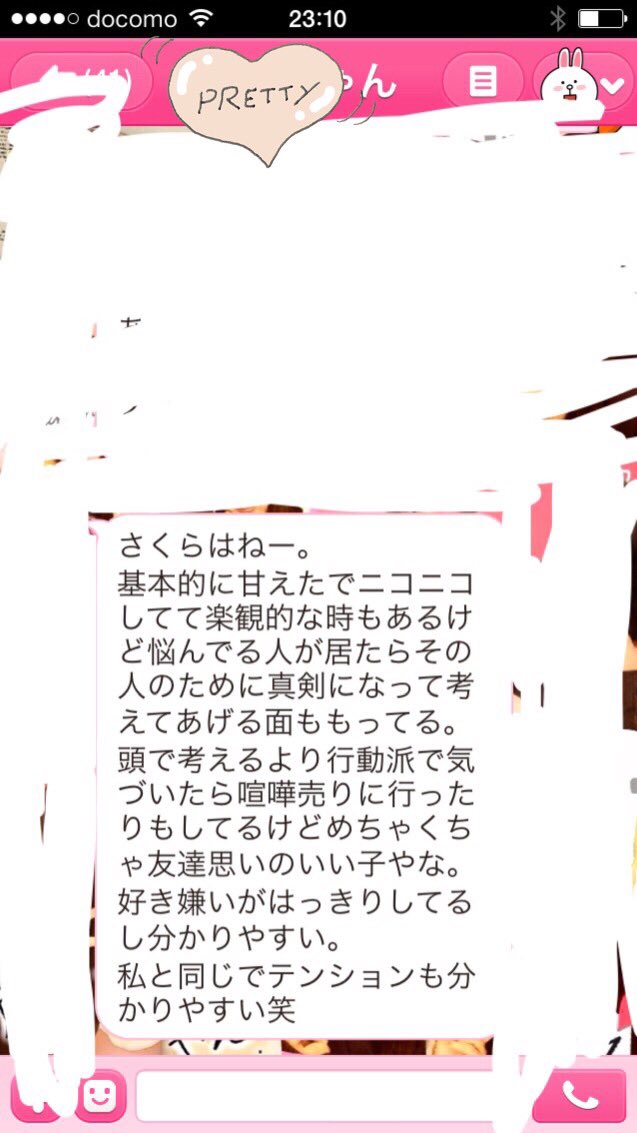 docomo
23:10
PRETTY
ん
さくらはねー。
基本的に甘えたでニコニコ
してて楽観的な時もあるけ
ど悩んでる人が居たらその
人のために真剣になって考
えてあげる面ももってる。
頭で考えるより行動派で気
づいたら喧嘩売りに行った
りもしてるけどめちゃくち
ゃ友達思いのいい子やな。
好き嫌いがはっきりしてる
し分かりやすい。
私と同じでテンションも分
かりやすい笑